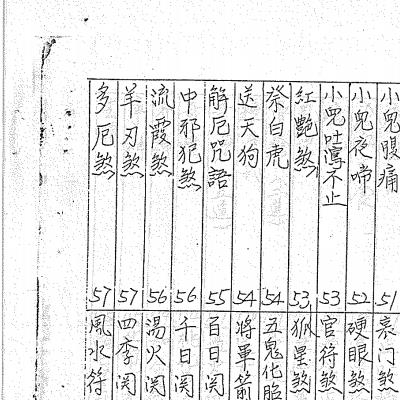 小兒腹痛 51
小兒夜啼 52
小兒吐瀉不止 53
紅艷煞 53
祭白虎 54
送天狗 54
解厄咒語 55
中邪犯煞 56
流霞煞 56
羊刃煞 57
多厄煞 57
喪門煞
硬眼煞
官符煞
狐星煞
五鬼化胎
將軍箭
百日関
千日関
湯火関
四季関
風水符